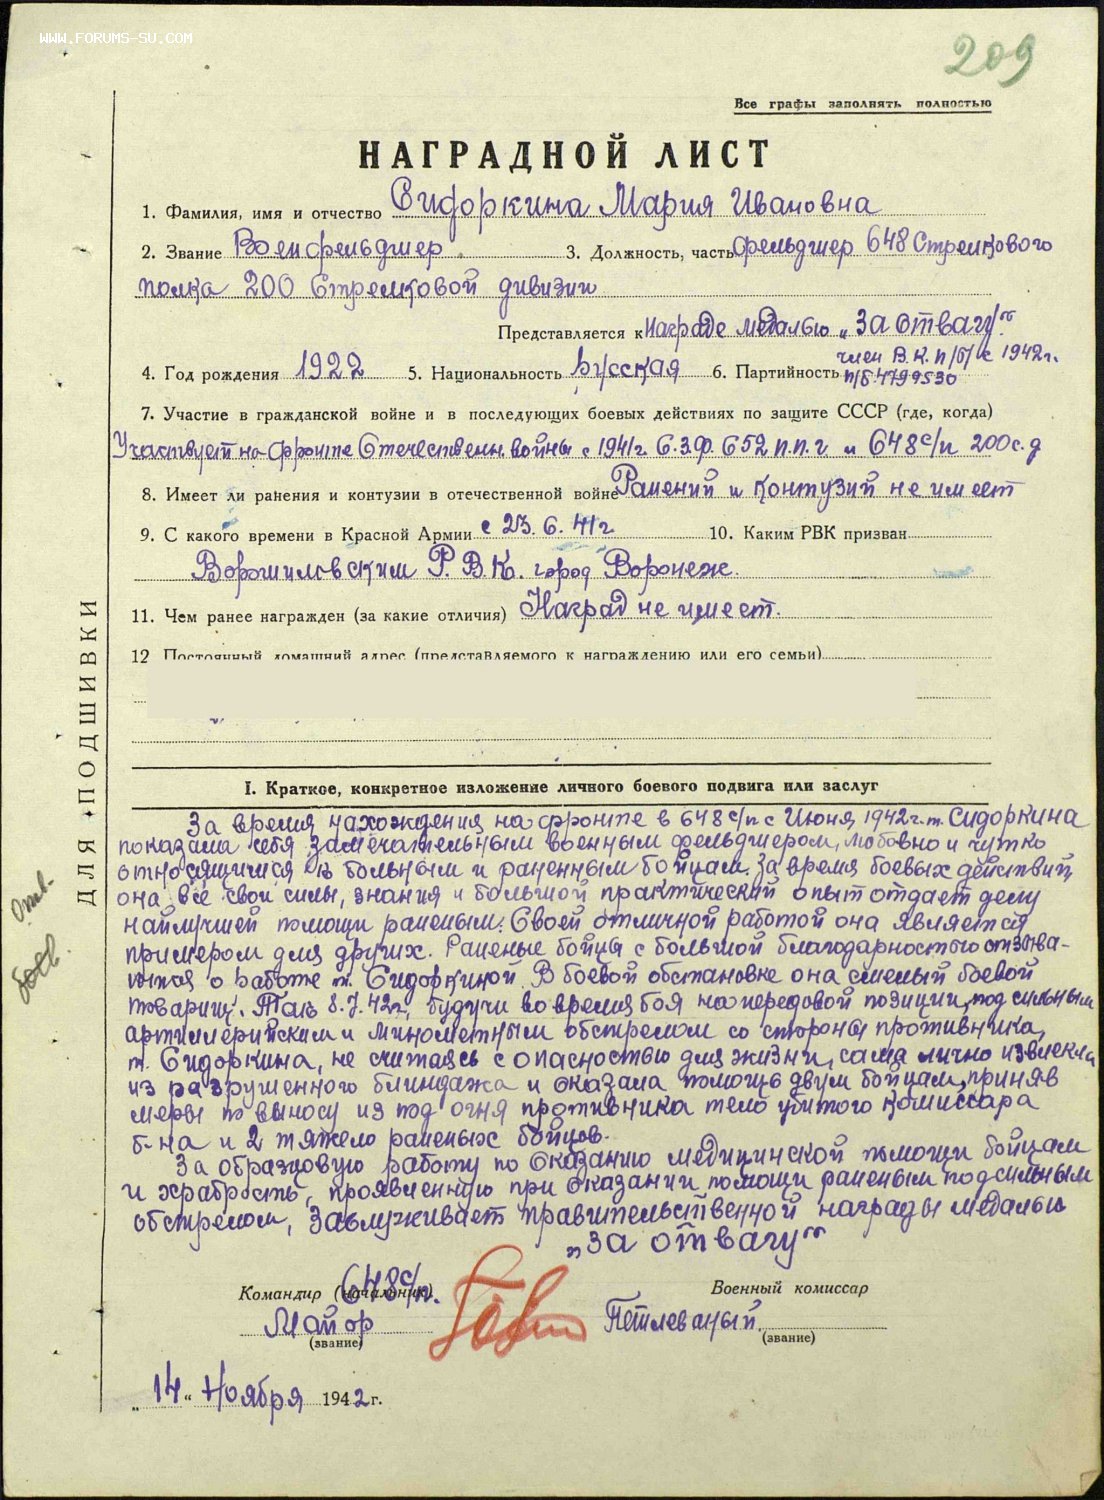 WWW.FORUMS-SU.COM
209
Все графы заполнять полностью
НАГРАДНОЙ ЛИСТ
1. Фамилия, имя и отчество Сидоркина Мария Ивановна
2. Звание Военфельдшер 3. Должность, часть фельдшер 648 Стрелкового
полка 200 Стрелковой дивизии
Представляется к Награде медалью „За отвагу"
член В.К.п/б/ с 1942г.
4. Год рождения 1922 5. Национальность Русская 6. Партийность п/б 4799530
7. Участие в гражданской войне и в последующих боевых действиях по защите СССР (где, когда)
Участвует на фронте Отечествен. войны с 1941г. С.З.Ф. 652 п.п.г и 648 с/п 200 с.д
8. Имеет ли ранения и контузии в отечественной войне Ранений и контузий не имеет
9. С какого времени в Красной Армии с 23.6.41г 10. Каким РВК призван
Ворошиловским Р.В.К. город Воронеж.
11. Чем ранее награжден (за какие отличия) Наград не имеет.
12 Постоянный домашний адрес (представляемого к награждению или его семьи)
ДЛЯ ПОДШИВКИ
I. Краткое, конкретное изложение личного боевого подвига или заслуг
За время нахождения на фронте в 648 с/п с Июня 1942г. т. Сидоркина
показала себя замечательным военным фельдшером, любовно и чутко
относящимся к больным и раненным бойцам. За время боевых действий
она все свои силы, знания и большой практический опыт отдает делу
наилучшей помощи раненым. Своей отличной работой она является
примером для других. Раненые бойцы с большой благодарностью отзыва-
ются о работе т. Сидоркиной. В боевой обстановке она смелый боевой
товарищ. Так 8.7.42г, будучи во время боя на передовой позиции, под сильным
артиллерийским и минометным обстрелом со стороны противника,
т. Сидоркина, не считаясь с опасностью для жизни, сама лично извлекла
из разрушенного блиндажа и оказала помощь двум бойцам, приняв
меры по выносу из под огня противника тело убитого комиссара
б-на и 2 тяжело раненых бойцов.
За образцовую работу по оказанию медицинской помощи бойцам
и храбрость, проявленную при оказании помощи раненым под сильным
обстрелом, заслуживает правительственной награды медалью
„За отвагу"
Командир (начальник) 648 с/п. Военный комиссар
Майор Петлеваный
(звание) (звание)
„14" Ноября 1942г.